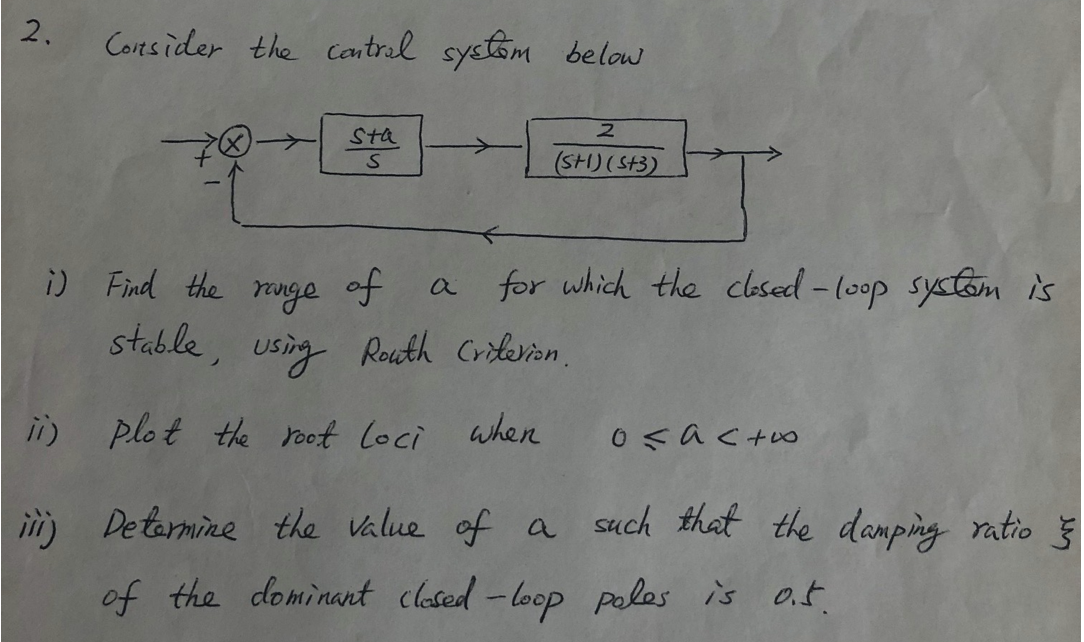 2. Consider the control system below
s+a
s
2
(s+1)(s+3)
+
−
i) Find the range of a for which the closed-loop system is
stable, using Routh Criterion.
ii) plot the root loci when 0 ≤ a < +∞
iii) Determine the value of a such that the damping ratio ξ
of the dominant closed-loop poles is 0.5.